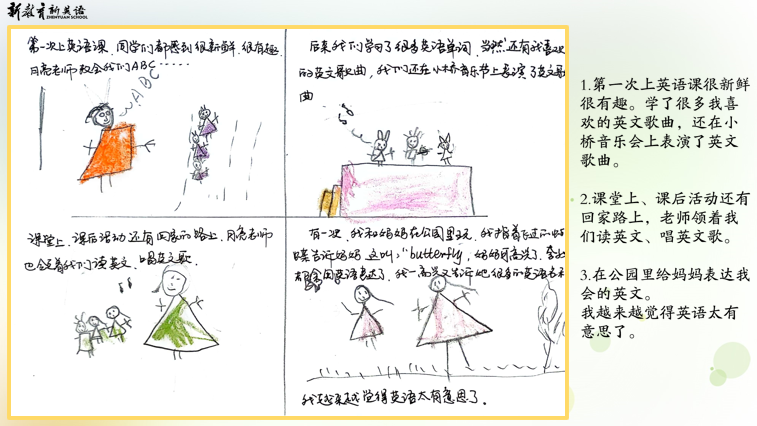 新教育新英语
ZHENYUAN SCHOOL
第一次上英语课,同学们都感到很新鲜,很有趣
月亮老师教会我们ABC······
ABC
后来我们学到了很多英语单词,当然还有我喜欢
的英文歌曲,我们还在小桥音乐节上表演了英文歌
曲
课堂上、课后活动还有回家的路上,月亮老师
也会领着我们读英文、唱英文歌
有一次,我和妈妈在公园里玩,我指着
告诉妈妈,这叫:"butterfly,妈妈
都会用英语表达了,我一高兴又告诉她很多
我越来越觉得英语太有意思了。
1.第一次上英语课很新鲜
很有趣。学了很多我喜
欢的英文歌曲,还在小
桥音乐会上表演了英文
歌曲。
2.课堂上、课后活动还有
回家路上,老师领着我
们读英文、唱英文歌。
3.在公园里给妈妈表达我
会的英文。
我越来越觉得英语太有
意思了。